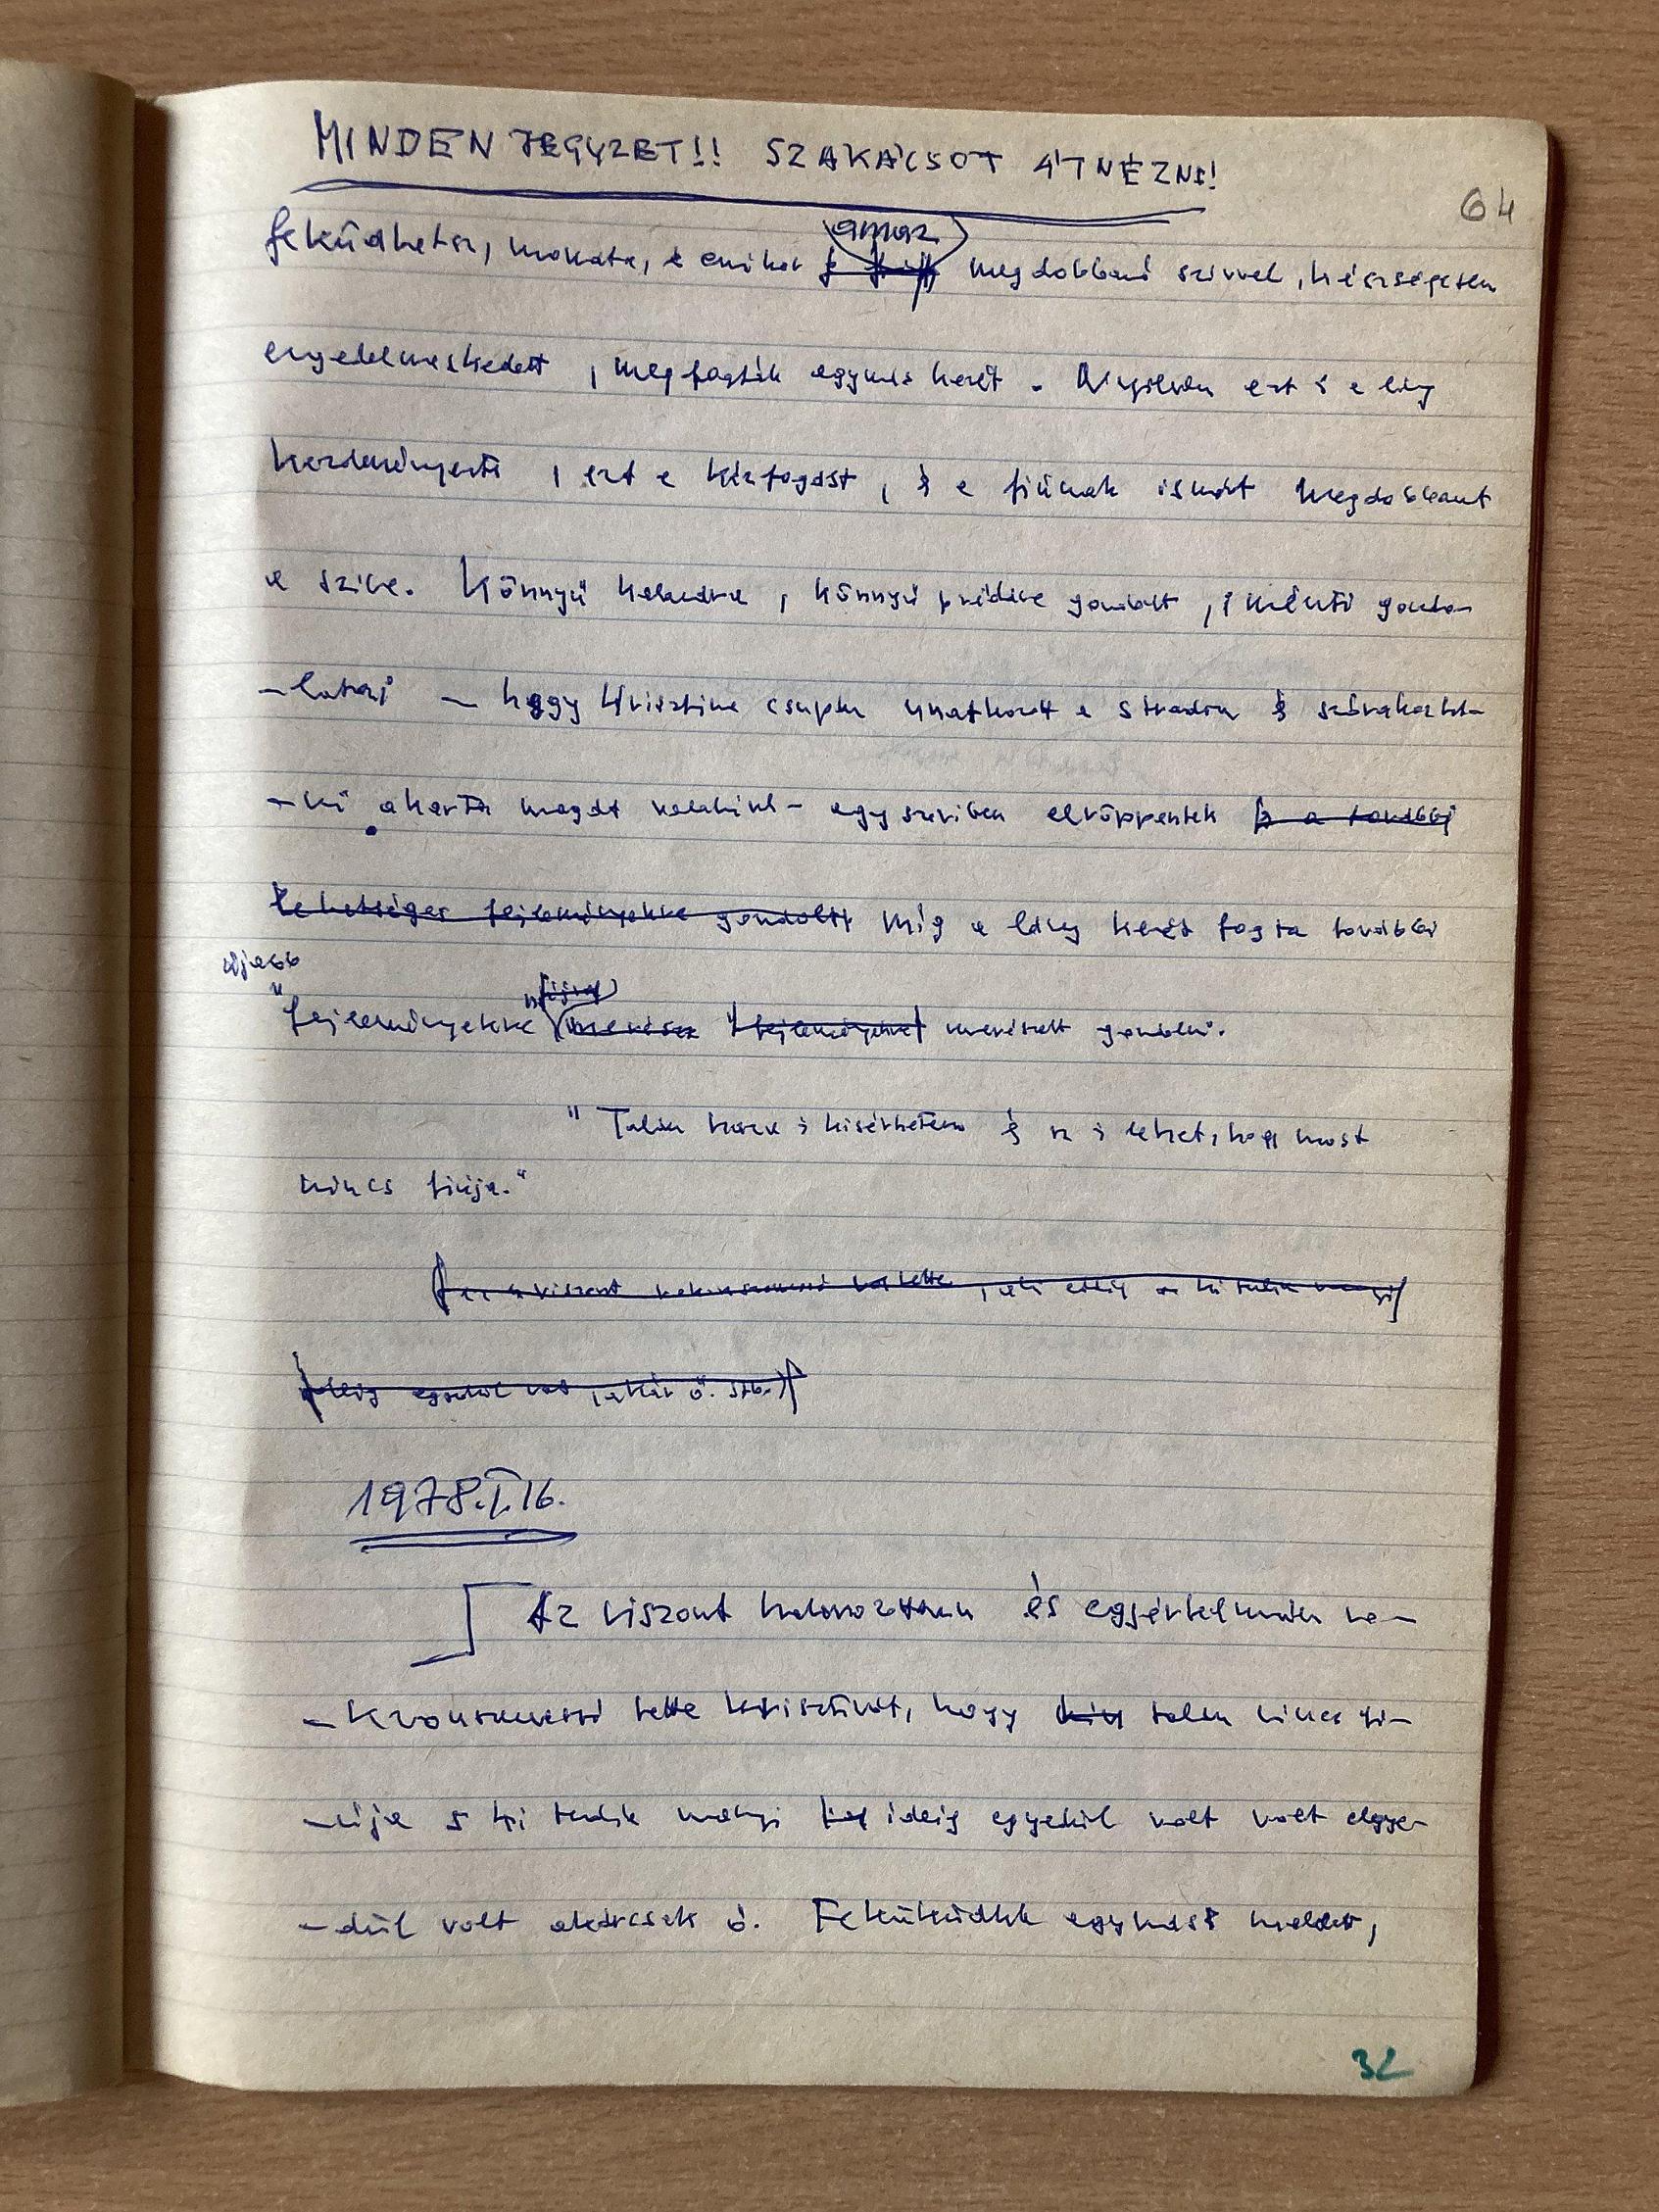 MINDEN JEGYZET!! SZAKÁCSOT ÁTNÉZNI!
64
amaz
feküdhetsz, mondta, s amikor megdobbanó szivvel, készségesen
engedelmeskedett, megfogták egymás kezét. Nyilván ezt is a lány
kezdeményezte, ezt a kézfogást, s a fiúnak ismét megdobbant
a szive. Könnyű kalandra, könnyű prédára gondolt, iménti gondo-
-latai - hogy Krisztina csupán unatkozott a strandon s szórakoztat-
-ni akarta magát valakivel - egyszeriben elröppentek s a további
lehetséges fejleményekre gondolt míg a lány kezét fogta további
ujabb
fejleményekre merész fejleményekre merészelt gondolni.
"Talán haza is kisérhetem s az is lehet, hogy most
nincs fiúja."
1978.I.16.
Az viszont határozottan és egyértelműen ro-
-konszenvessé tette Krisztinát, hogy talán nincs fi-
-úja s ki tudja mennyi ideig egyedül volt volt egye-
-dül volt akárcsak ő. Feküdtek egymás mellett,
32